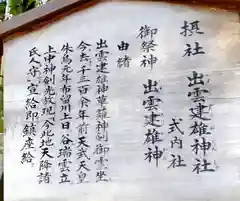 摂社 出雲建雄神社 式内社
御祭神 出雲建雄神
由緒
出雲建雄神草薙神剣御霊坐
今去千三百余年前天武天皇
朱鳥元年布留川上日谷瑞雲立
上中神剣光放現今此地天降諸
氏人守宣給即鎮座給